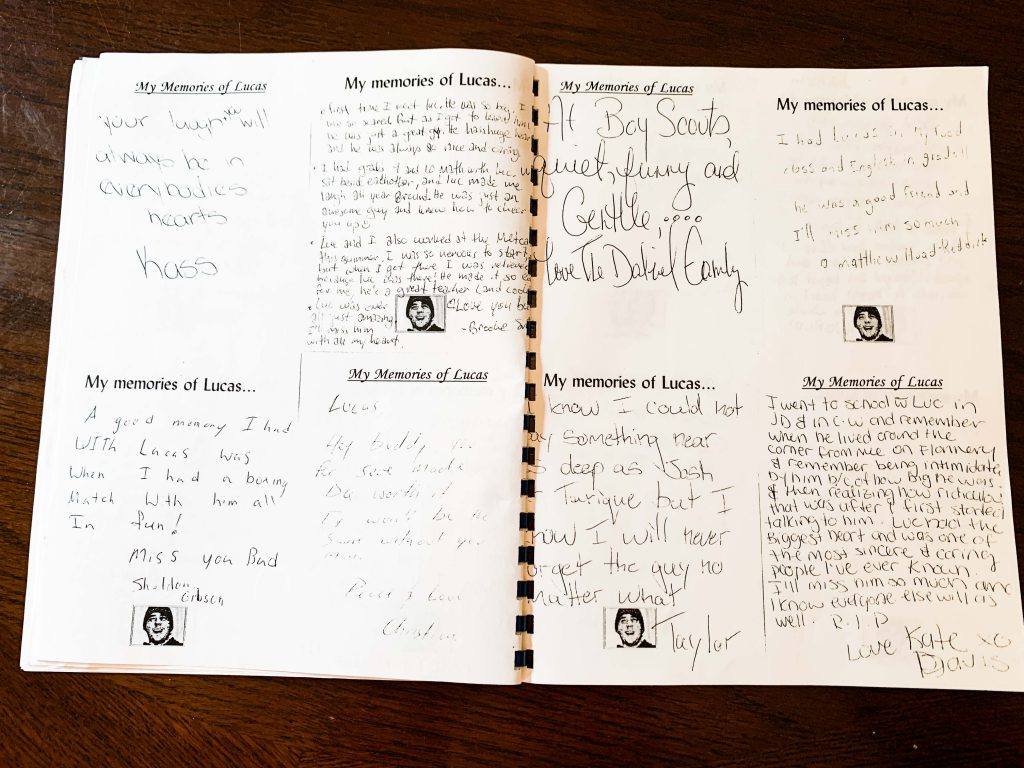 My Memories of Lucas
your laugh you will
always be in
everybodies
hearts
Kass
My memories of Lucas...
first time I met luc, He was so big, I
was so scared But as I got to know him
he was just a great guy. He has huge heart
and he was always so nice and caring
• I had grade 9 and 10 math with luc. we
sit beside eachother, and luc made me
laugh all year around. He was just an
awesome guy and knew how to cheer
you up
• Luc and I also worked at the
this summer, I was so nervous to start,
but when I got there I was relieved
because luc was there! He made it so
for me, he's a great teacher (and cool)
• Luc was over
all just amazing
I'll miss him
with all my heart.
Love you
- Brooke
My memories of Lucas...
A good memory I had
With Lucas was
When I had a boxing
Match With him all
In fun!
Miss you Bud
Sheldon
Gibson
My Memories of Lucas
Lucas,
Hey buddy, you
for sure made
worth it
won't be the
same without you
man.
Peace & Love
Christina
My Memories of Lucas
At Boy Scouts,
quiet, funny and
Gentle.....
Love The Family
My memories of Lucas...
I had Lucas in my food
class and English in grade 11
he was a good friend and
I'll miss him so much
matthew
My memories of Lucas...
I know I could not
say something near
as deep as Josh
or but I
know I will never
forget the guy no
matter what
Taylor
My Memories of Lucas
I went to school w Luc in
JD & in C.W and remember
when he lived around the
corner from me on Flannery
& remember being intimidated
by him b/c of how Big he was
& then realizing how ridiculous
that was after I first started
talking to him. Luc had the
Biggest heart and was one of
the most sincere & caring
people I've ever known
I'll miss him so much and
I know everyone else will as
well. R.I.P
Love Kate xo
Davis